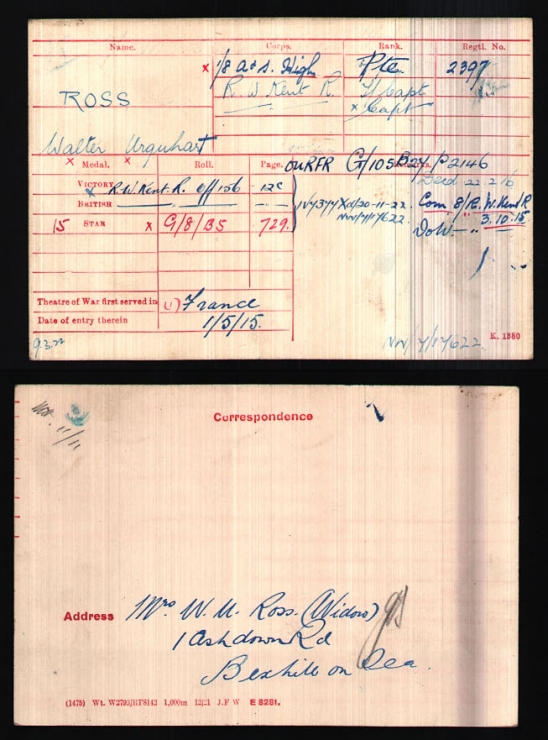 Name. Corps. Rank. Regtl. No.
x 1/8 A & S. High Pte 2397
ROSS R. W Kent R. T/Capt
x Capt
Walter Urquhart
x Medal. x Roll. Page.
VICTORY R.W. Kent R. Off 156 12C
x BRITISH — " — — " — — " —
15 STAR x G/8/B5 729.
Died 22 2 16
Com 8/R. W. Kent R
3.10.15
DofW — " —
NW/7/17622
Theatre of War first served in (1) France
Date of entry therein 1/5/15.
9.3.22 NW/7/17622 K. 1380
Correspondence
Address Mrs W. U. Ross. (Widow)
1 Ashdown Rd
Bexhill on Sea.
(1475) Wt. W2793/RT8143 1,000m 12/21 J.F W E 8281.